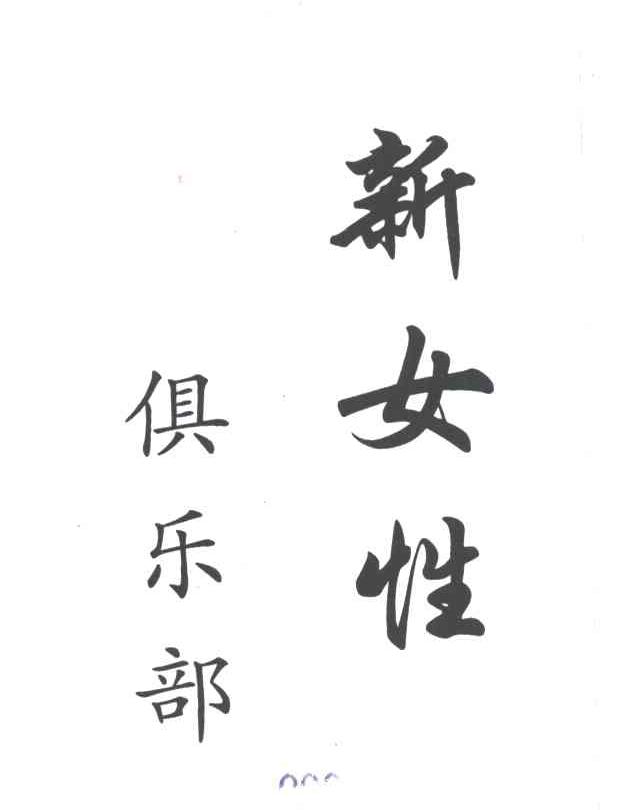 新女性
俱乐部